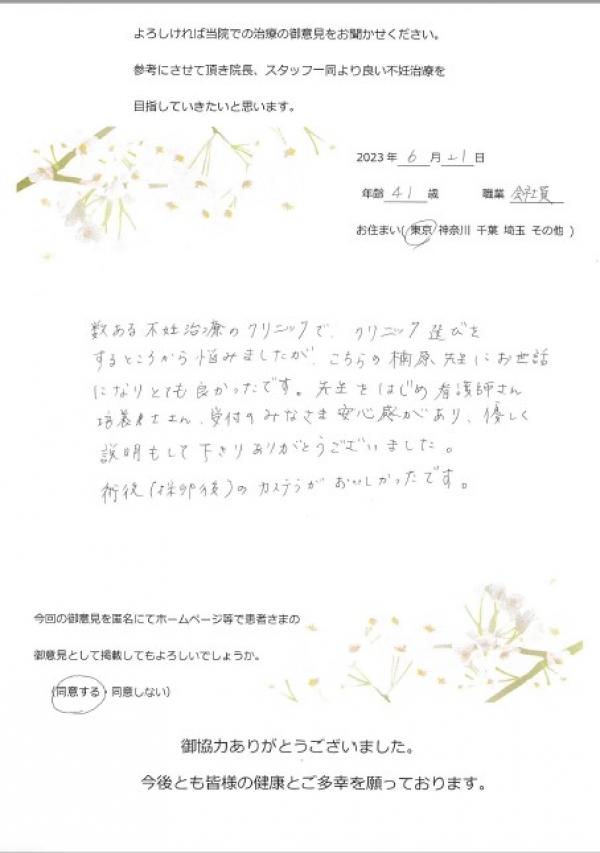 よろしければ当院での治療の御意見をお聞かせください。
参考にさせて頂き院長、スタッフ一同より良い不妊治療を
目指していきたいと思います。
2023年 6 月 21 日
年齢 41 歳 職業 会社員
お住まい( 東京 神奈川 千葉 埼玉 その他 )
数ある不妊治療のクリニックで、クリニック選びを
するところから悩みましたが、こちらの楠原先生にお世話
になりとても良かったです。先生をはじめ看護師さん
培養士さん、受付のみなさま安心感があり、優しく
説明もして下さりありがとうございました。
術後(採卵後)のカステラがおいしかったです。
今回の御意見を匿名にてホームページ等で患者さまの
御意見として掲載してもよろしいでしょうか。
(同意する・同意しない)
御協力ありがとうございました。
今後とも皆様の健康とご多幸を願っております。